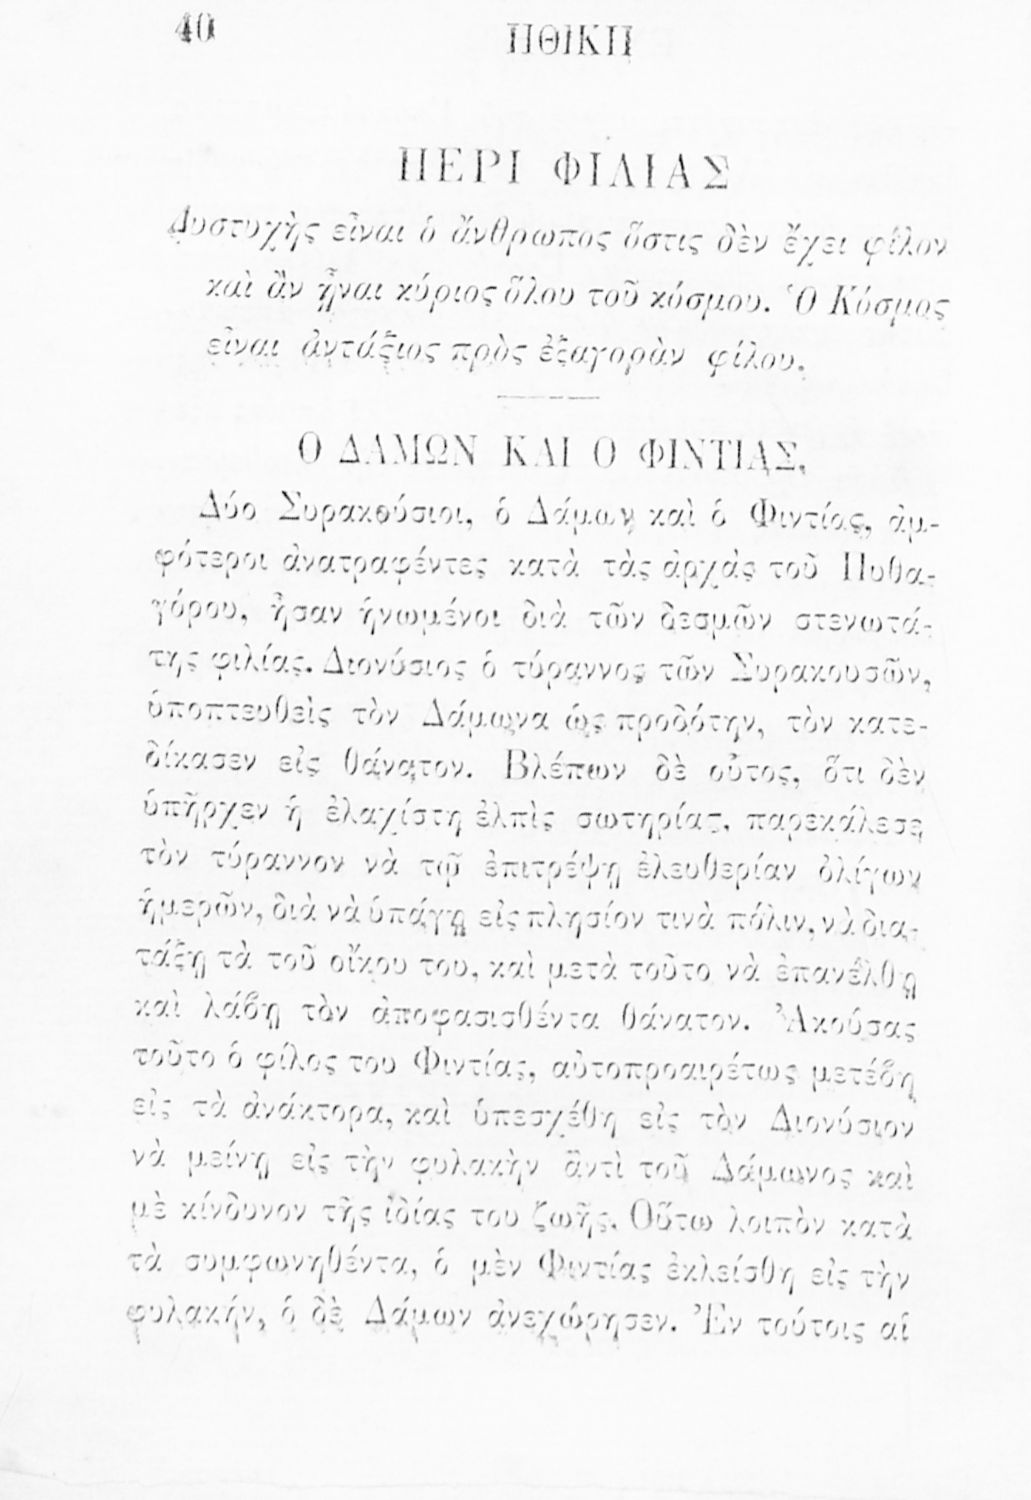 40
ΗΘΙΚΗ
ΠΕΡΙ ΦΙΛΙΑΣ
Δυστυχὴς εἶναι ὁ ἄνθρωπος ὅστις δὲν ἔχει φίλον
καὶ ἂν ᾖναι κύριος ὅλου τοῦ κόσμου. Ὁ Κόσμος
εἶναι ἀντάξιος πρὸς ἐξαγορὰν φίλου.
Ο ΔΑΜΩΝ ΚΑΙ Ο ΦΙΝΤΙΑΣ.
Δύο Συρακούσιοι, ὁ Δάμων καὶ ὁ Φιντίας, ἀμ-
φότεροι ἀνατραφέντες κατὰ τὰς ἀρχάς τοῦ Πυθα-
γόρου, ἦσαν ἡνωμένοι διὰ τῶν δεσμῶν στενωτά-
της φιλίας. Διονύσιος ὁ τύραννος τῶν Συρακουσῶν,
ὑποπτευθεὶς τὸν Δάμωνα ὡς προδότην, τὸν κατε-
δίκασεν εἰς θάνατον. Βλέπων δὲ οὗτος, ὅτι δὲν
ὑπῆρχεν ἡ ἐλαχίστη ἐλπὶς σωτηρίας, παρεκάλεσε
τὸν τύραννον νὰ τῷ ἐπιτρέψῃ ἐλευθερίαν ὀλίγων
ἡμερῶν, διὰ νὰ ὑπάγῃ εἰς πλησίον τινὰ πόλιν, νὰ δια-
τάξῃ τὰ τοῦ οἴκου του, καὶ μετὰ τοῦτο νὰ ἐπανέλθῃ
καὶ λάβῃ τὸν ἀποφασισθέντα θάνατον. Ἀκούσας
τοῦτο ὁ φίλος του Φιντίας, αὐτοπροαιρέτως μετέβη
εἰς τὰ ἀνάκτορα, καὶ ὑπεσχέθη εἰς τὸν Διονύσιον
νὰ μείνῃ εἰς τὴν φυλακὴν ἀντὶ τοῦ Δάμωνος καὶ
μὲ κίνδυνον τῆς ἰδίας του ζωῆς. Οὕτω λοιπὸν κατὰ
τὰ συμφωνηθέντα, ὁ μὲν Φιντίας ἐκλείσθη εἰς τὴν
φυλακήν, ὁ δὲ Δάμων ἀνεχώρησεν. Ἐν τούτοις αἱ